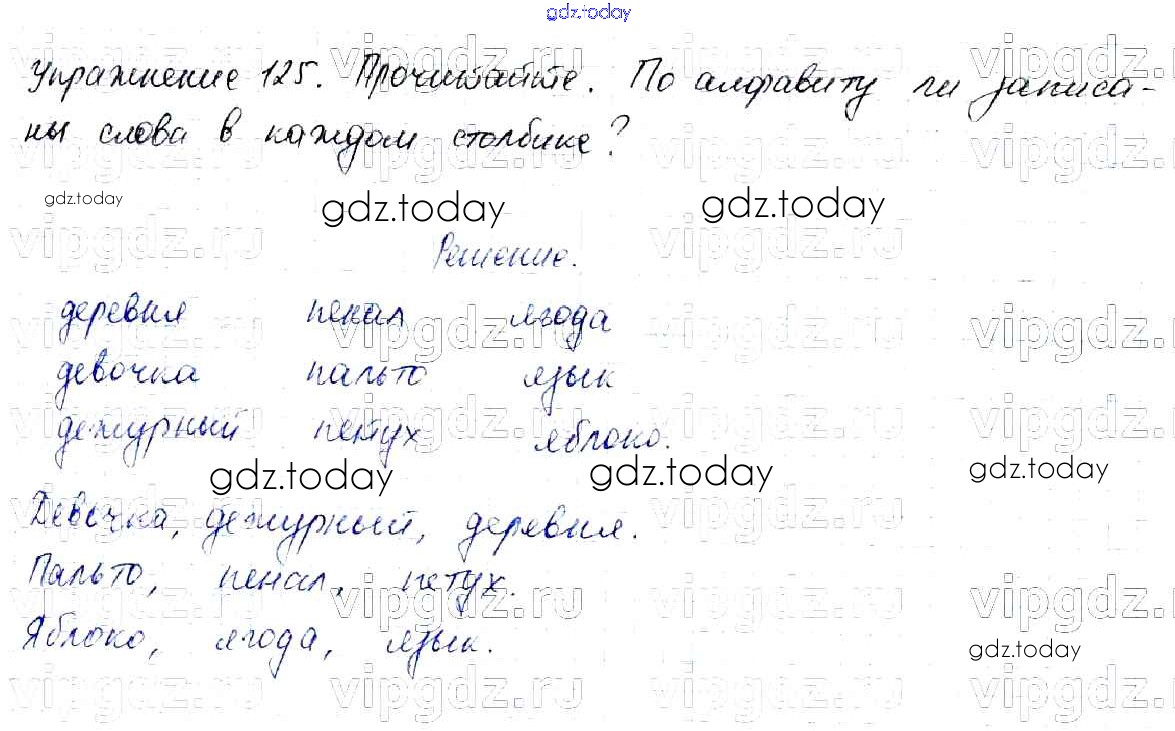 gdz.today
Упражнение 125. Прочитайте. По алфавиту ли записа-
ны слова в каждом столбике?
gdz.today gdz.today gdz.today
Решение.
деревня пенал ягода
девочка пальто язык
дежурный петух яблоко.
gdz.today gdz.today gdz.today
Девочка, дежурный, деревня.
Пальто, пенал, петух.
Яблоко, ягода, язык.
gdz.today
vipgdz.ru vipgdz.ru vipgdz.ru vipgdz.ru